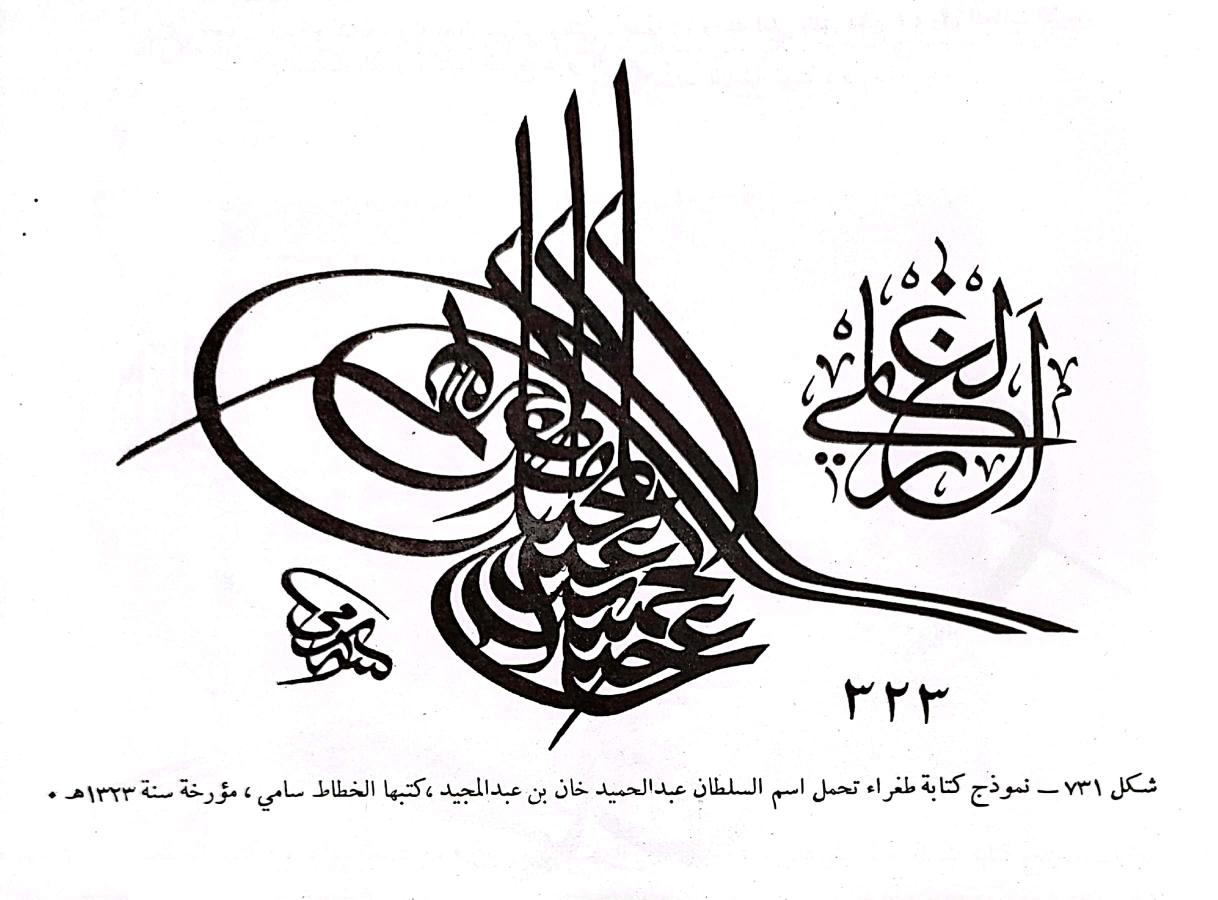 الغازي
عبد الحميد خان بن عبد المجيد المظفر دائما
٣٢٣
شكل ٧٣١ — نموذج كتابة طغراء تحمل اسم السلطان عبدالحميد خان بن عبدالمجيد ،كتبها الخطاط سامي ، مؤرخة سنة ١٣٢٣هـ ٠